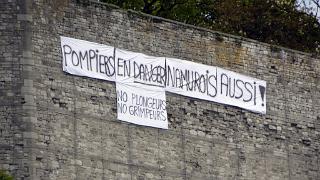 POMPIERS EN DANGER NAMUROIS AUSSI!
NO PLONGEURS
NO GRIMPEURS